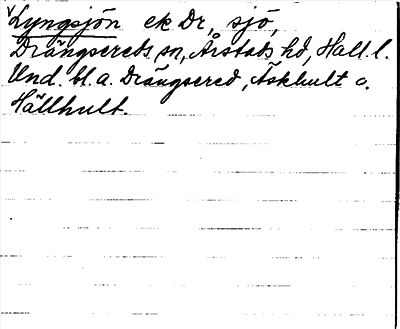 Lyngsjön ek Dr, sjö,
Drängsereds sn, Årstads hd, Hall. l.
Und. bl. a. Drängsered, Äskhult o.
Hällhult.